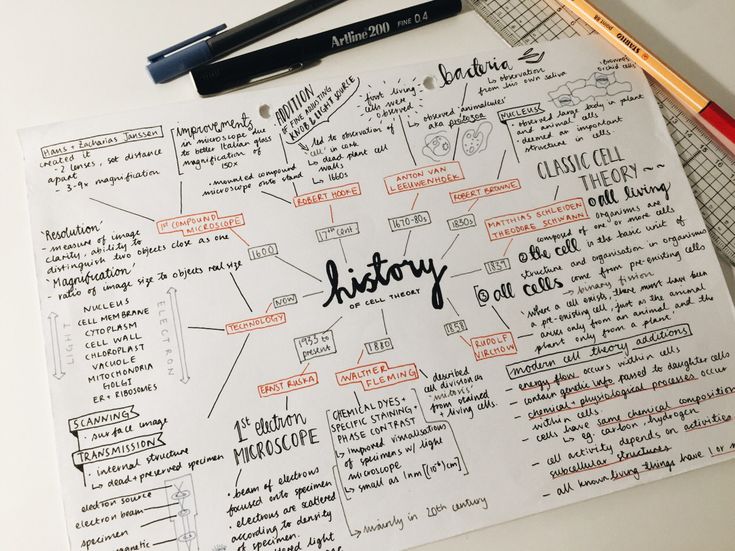 Artline 200
FINE 0.4
STABILO
point 88
Hans + Zacharias Janssen
created it
- 2 lenses, set distance
apart
- 3-9x magnification
improvements
in microscope due
to better Italian glass
magnification of
150x
ADDITION
OF FINE ADJUSTING
KNOB & LIGHT SOURCE
led to observation of
'cell' in cork
↳ dead plant cell
walls
↳ 1660s
mounted compound
microscope onto stand
first living
cells were
observed
bacteria
↳ observation
from his own saliva
↳ observed 'animalcules'
aka protozoa
Browne's
orchid cells
NUCLEUS
• observed large body in plant
and animal cells
- deemed an important
structure in cells.
1st COMPOUND
MICROSCOPE
ROBERT HOOKE
ANTON VAN
LEEUWENHOEK
ROBERT BROWNE
MATTHIAS SCHLEIDEN
THEODORE SCHWANN
1600
17th cent.
1670-80s
1830s
1839
CLASSIC CELL
THEORY
① all living
organisms are
composed of one or more cells
② the cell is the basic unit of
structure and organisation in organisms
③ all cells come from pre-existing cells
↳ binary fission
'where a cell exists, there must have been
a pre-existing cell, just as the animal
arises only from an animal and the
plant only from a plant.'
'Resolution'
- measure of image
clarity, ability to
distinguish two objects close as one
'Magnification'
- ratio of image size to objects real size
LIGHT
NUCLEUS
CELL MEMBRANE
CYTOPLASM
CELL WALL
CHLOROPLAST
VACUOLE
MITOCHONDRIA
GOLGI
ER + RIBOSOMES
ELECTRON
history
OF CELL THEORY
NOW
TECHNOLOGY
1933 to
present
ERNST RUSKA
1880
WALTHER
FLEMING
1858
RUDOLF
VIRCHOW
SCANNING
• surface image
TRANSMISSION
• internal structure
↳ dead + preserved specimen
electron source
electron beam
specimen
magnetic
1st electron
MICROSCOPE
• beam of electrons
focused onto specimen
• electrons are scattered
according to density
of specimen.
light
CHEMICAL DYES +
SPECIFIC STAINING +
PHASE CONTRAST
↳ improved visualisations
of specimens w/ light
microscope
↳ small as 1nm
↳ mainly in 20th century
described
cell division as
'mitosis'
from stained
+ living cells.
modern cell theory additions
- energy flow occurs within cells
- contain genetic info passed to daughter cells
- chemical + physiological processes occur
within cells.
- cells have same chemical composition
↳ eg. carbon, hydrogen
- cell activity depends on activities
subcellular structures
- all known living things have 1 or